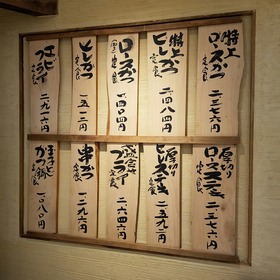 特上
ロースかつ
定食
二三七六円
特上
ヒレかつ
定食
二四八四円
ロースかつ
定食
一四〇四円
ヒレかつ
定食
一五一二円
エビ
フライ
定食
二九一六円
厚切り
ロースステーキ
定食
二三七六円
厚切り
ヒレステーキ
定食
二五九二円
盛合せ
フライ
定食
二六四六円
串かつ
定食
一二九六円
玉子とじ
かつ鍋
定食
一〇八〇円